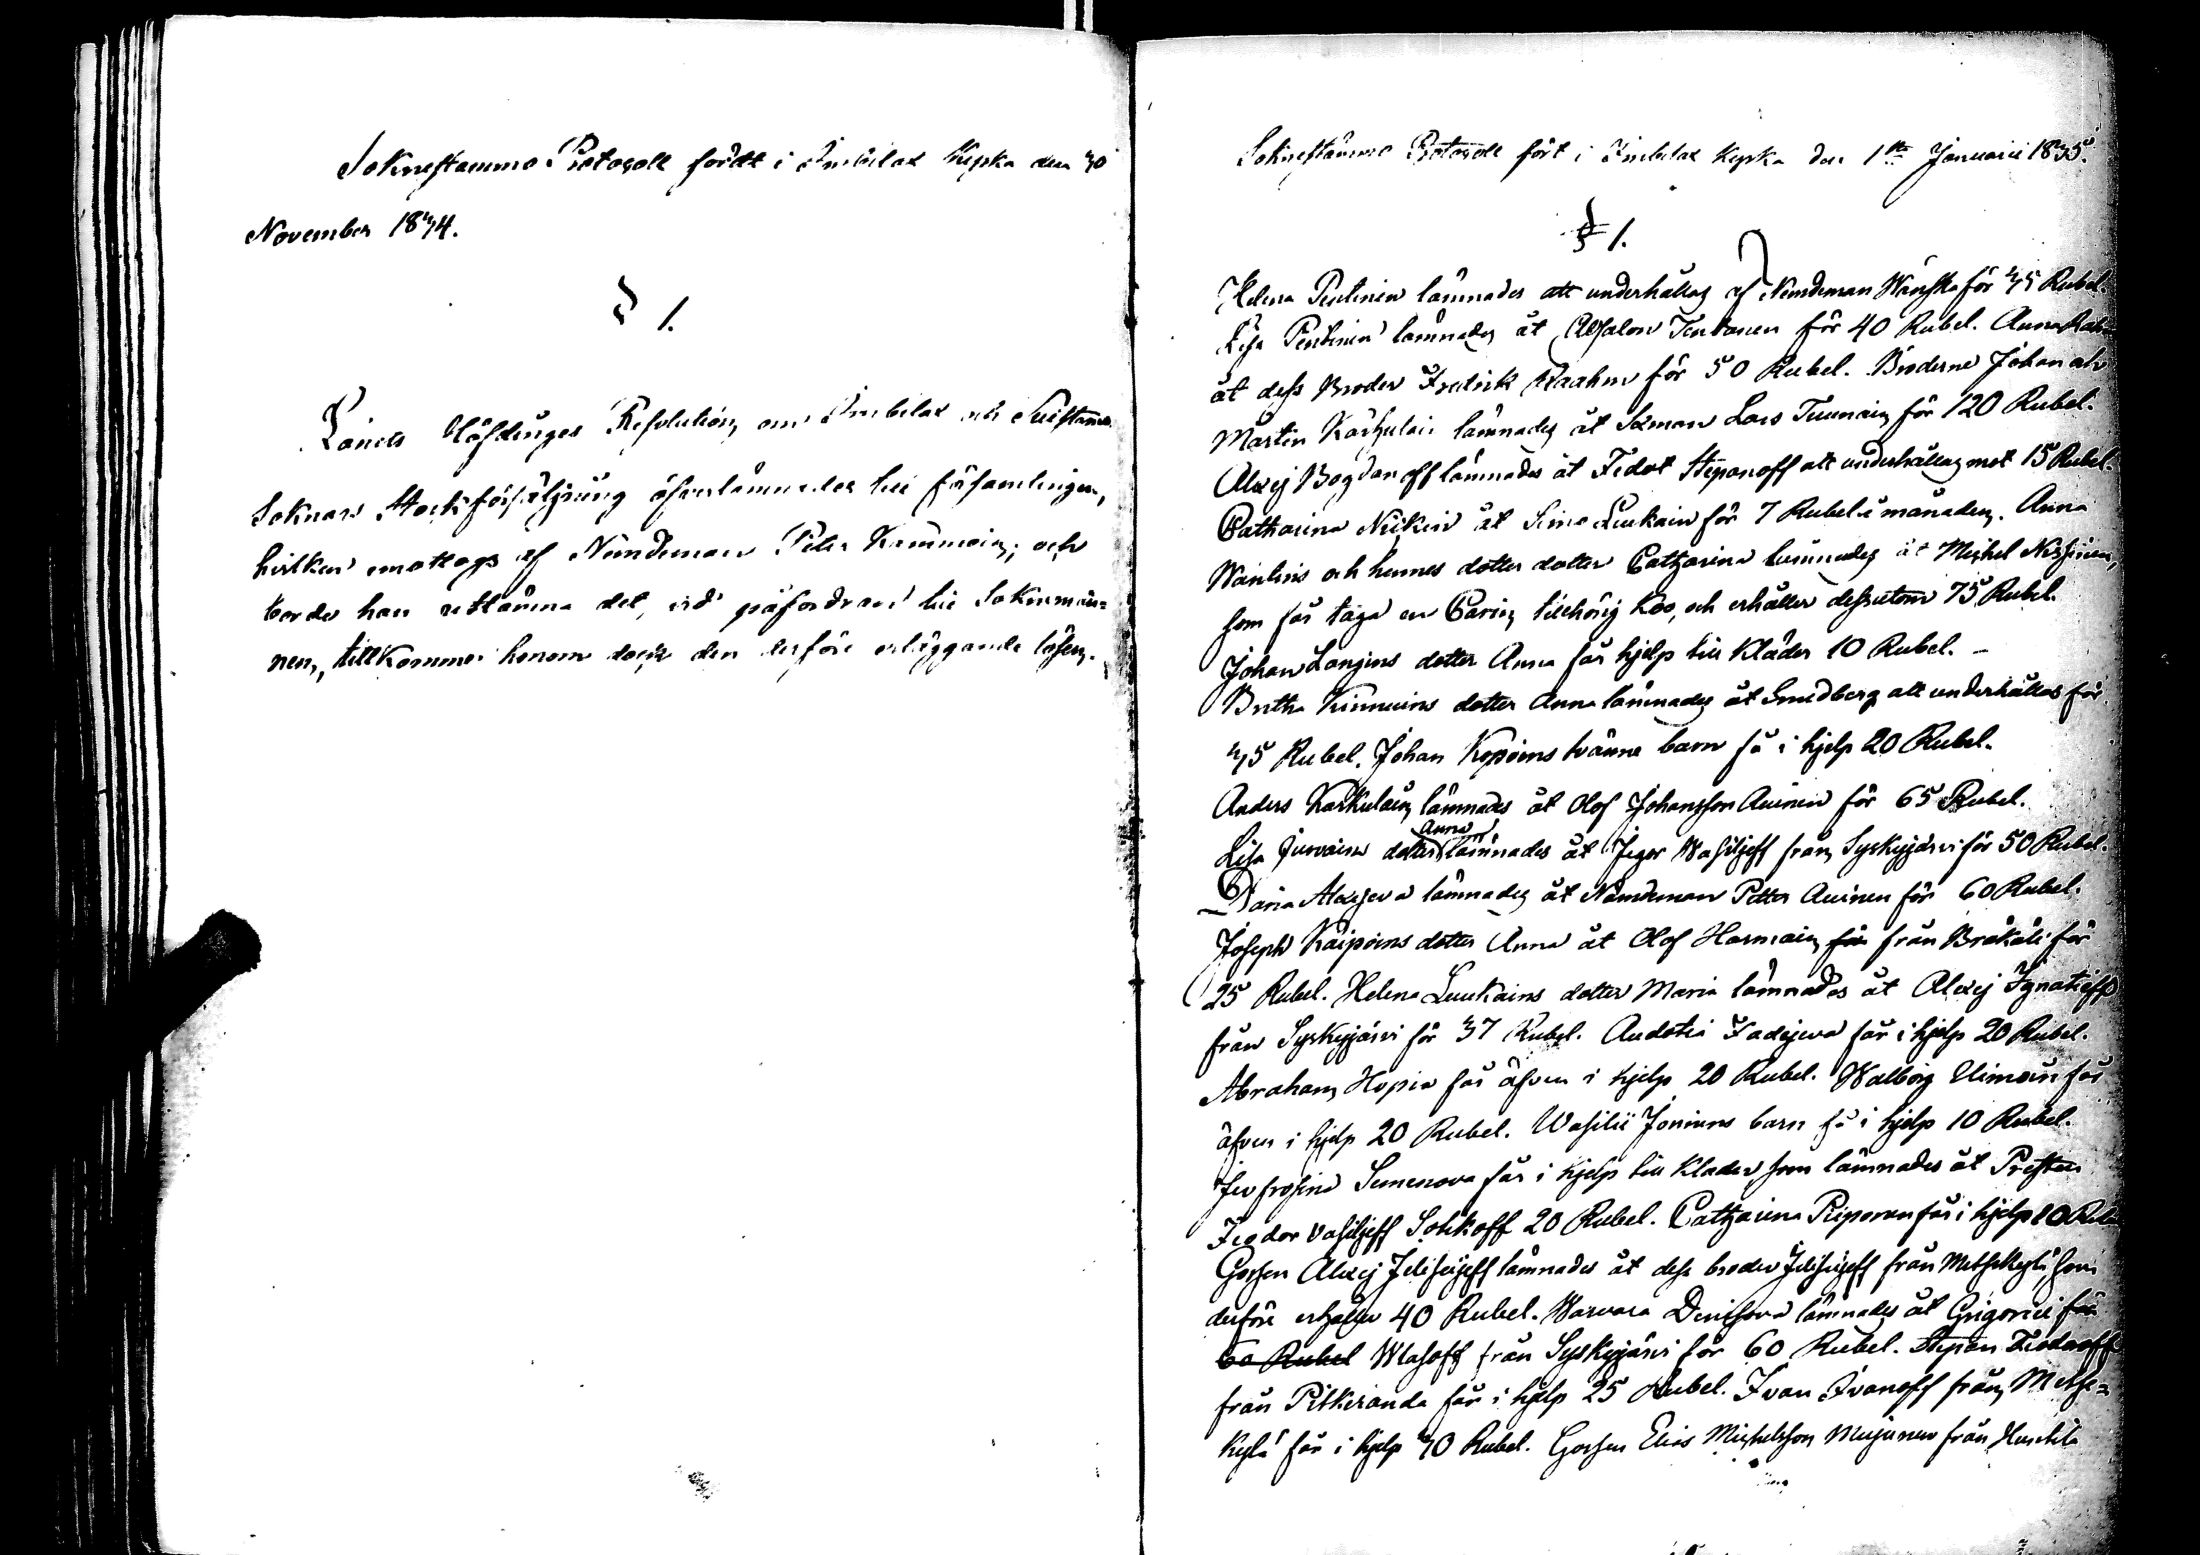 Soknestämmo Protocoll fördt i Imbilax Kyrka den 30
November 1834.
§ 1.
Länets Höfdinges Resolution om Imbilax och Suistamo
Soknars Stockförsäljning öfverlämnades till församlingen,
hvilken emottogs af Nämdeman Peter Kammoin; och
borde han utlämna det, vid påfordran till Soknemän-
nen, tillkommer honom dock den derföre erläggande lösen.
Sokneståmmo Protocoll fört i Imbilax Kyrka den 1sta Januarii 1835.
§ 1.
Helena Pentinen lämnades att underhållas af Nämdeman Wänskä för 35 Rubel.
Lisa Pentinen lämnades åt Absalon Tentonen för 40 Rubel. Anna
åt dess Broder Fredrik Raahm för 50 Rubel. Bröderne Johan och
Martin Karhulain lämnades åt Sexman Lars Tuunain för 120 Rubel.
Alexej Bogdanoff lämnades åt Fedot Stepanoff att underhållas mot 15 Rubel.
Catharina Nuikin åt Simo Luukain för 7 Rubel i månaden. Anna
Wäntins och hennes dotter dotter Catharina lämnades åt Michel Nissinen,
som får taga en Carin tillhörig Ko, och erhåller dessutom 75 Rubel.
Johan Längins dotter Anna får hjelp till Kläder 10 Rubel. –
Britha Kinnuins dotter Anna lämnades åt Smedberg att underhållas för
35 Rubel. Johan Koppoins tvänne barn få i hjelp 20 Rubel.
Anders Karkulain lämnades åt Olof Johansson Auinen för 65 Rubel.
Lisa Jurvains dotter Anna lämnades åt Jegor Wasiljeff från Syskyjärvi för 50 Rubel.
Daria Alexjeva lämnades åt Nämdeman Petter Auinen för 60 Rubel.
Joseph Kaipoins dotter Anna åt Olof Harmain för från Bråkäli för
25 Rubel. Helena Luukains dotter Maria lämnades åt Alexej Ignatieff
från Syskyjärvi för 37 Rubel. Audotia Fadejewa får i hjelp 20 Rubel.
Abraham Hopia får äfven i hjelp 20 Rubel. Walborg Uimoin får
äfven i hjelp 20 Rubel. Wasilii Joninns barn få i hjelp 10 Rubel.
Jevfrosina Semenova får i hjelp till Kläder som lämnades åt Presten
Feodor Vasiljeff Sotikoff 20 Rubel. Catharina Piiponen får i hjelp 20
Gossen Alexej Jelisejeff lämnades åt dess broder Jelisejeff från Metsekylä, som
derföre erhåller 40 Rubel. Warvara Denisova lämnades åt Grigorii för
60 Rubel Wlasoff från Syskyjärvi för 60 Rubel. Stepan Feodoroff
från Pitkeranda får i hjelp 25 Rubel. Ivan Ivanoff från Metse-
kylä får i hjelp 30 Rubel. Gossen Elias Michelsson Muijunen från